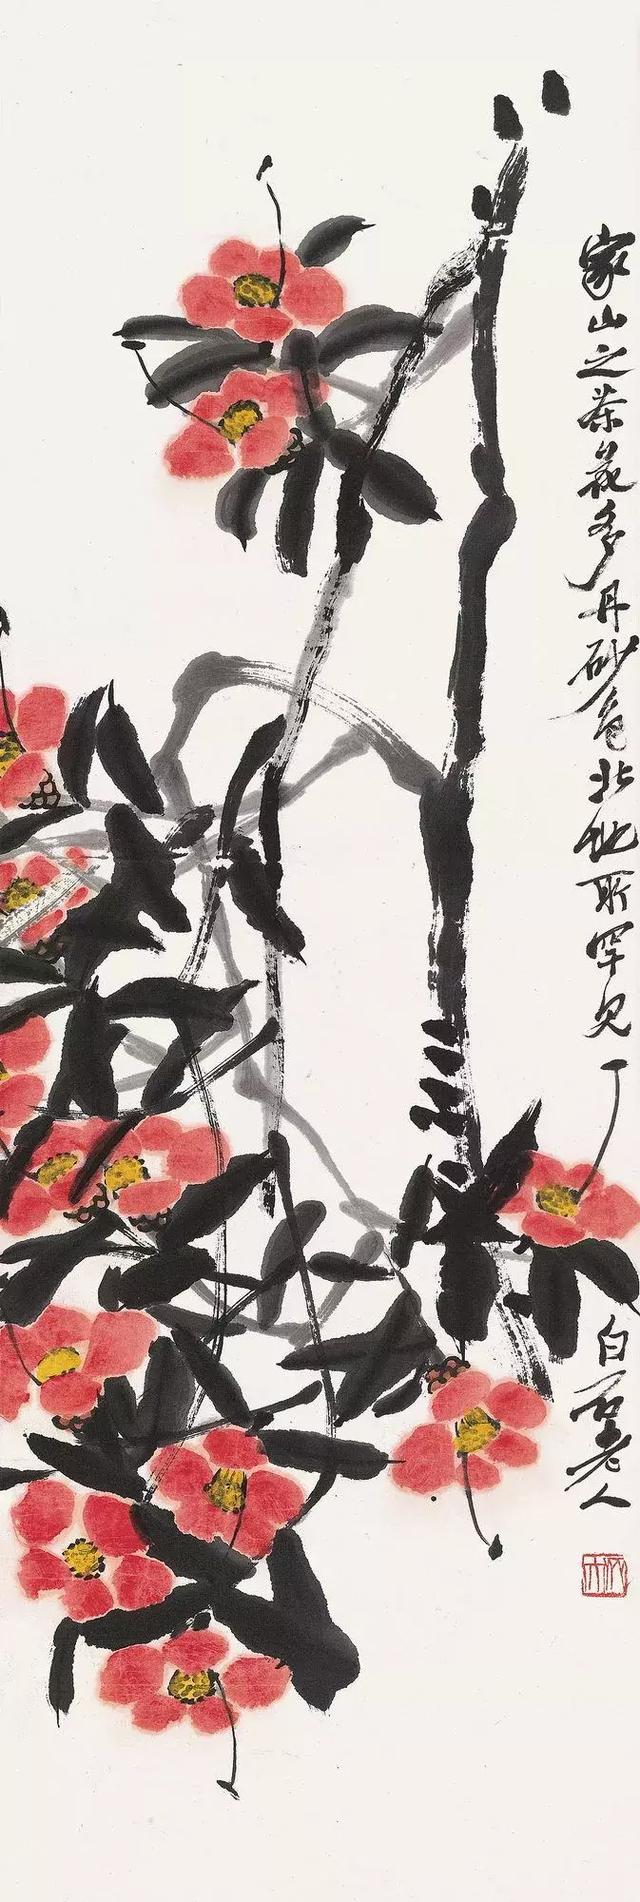 家山之茶花多丹砂色北地所罕見
白石老人